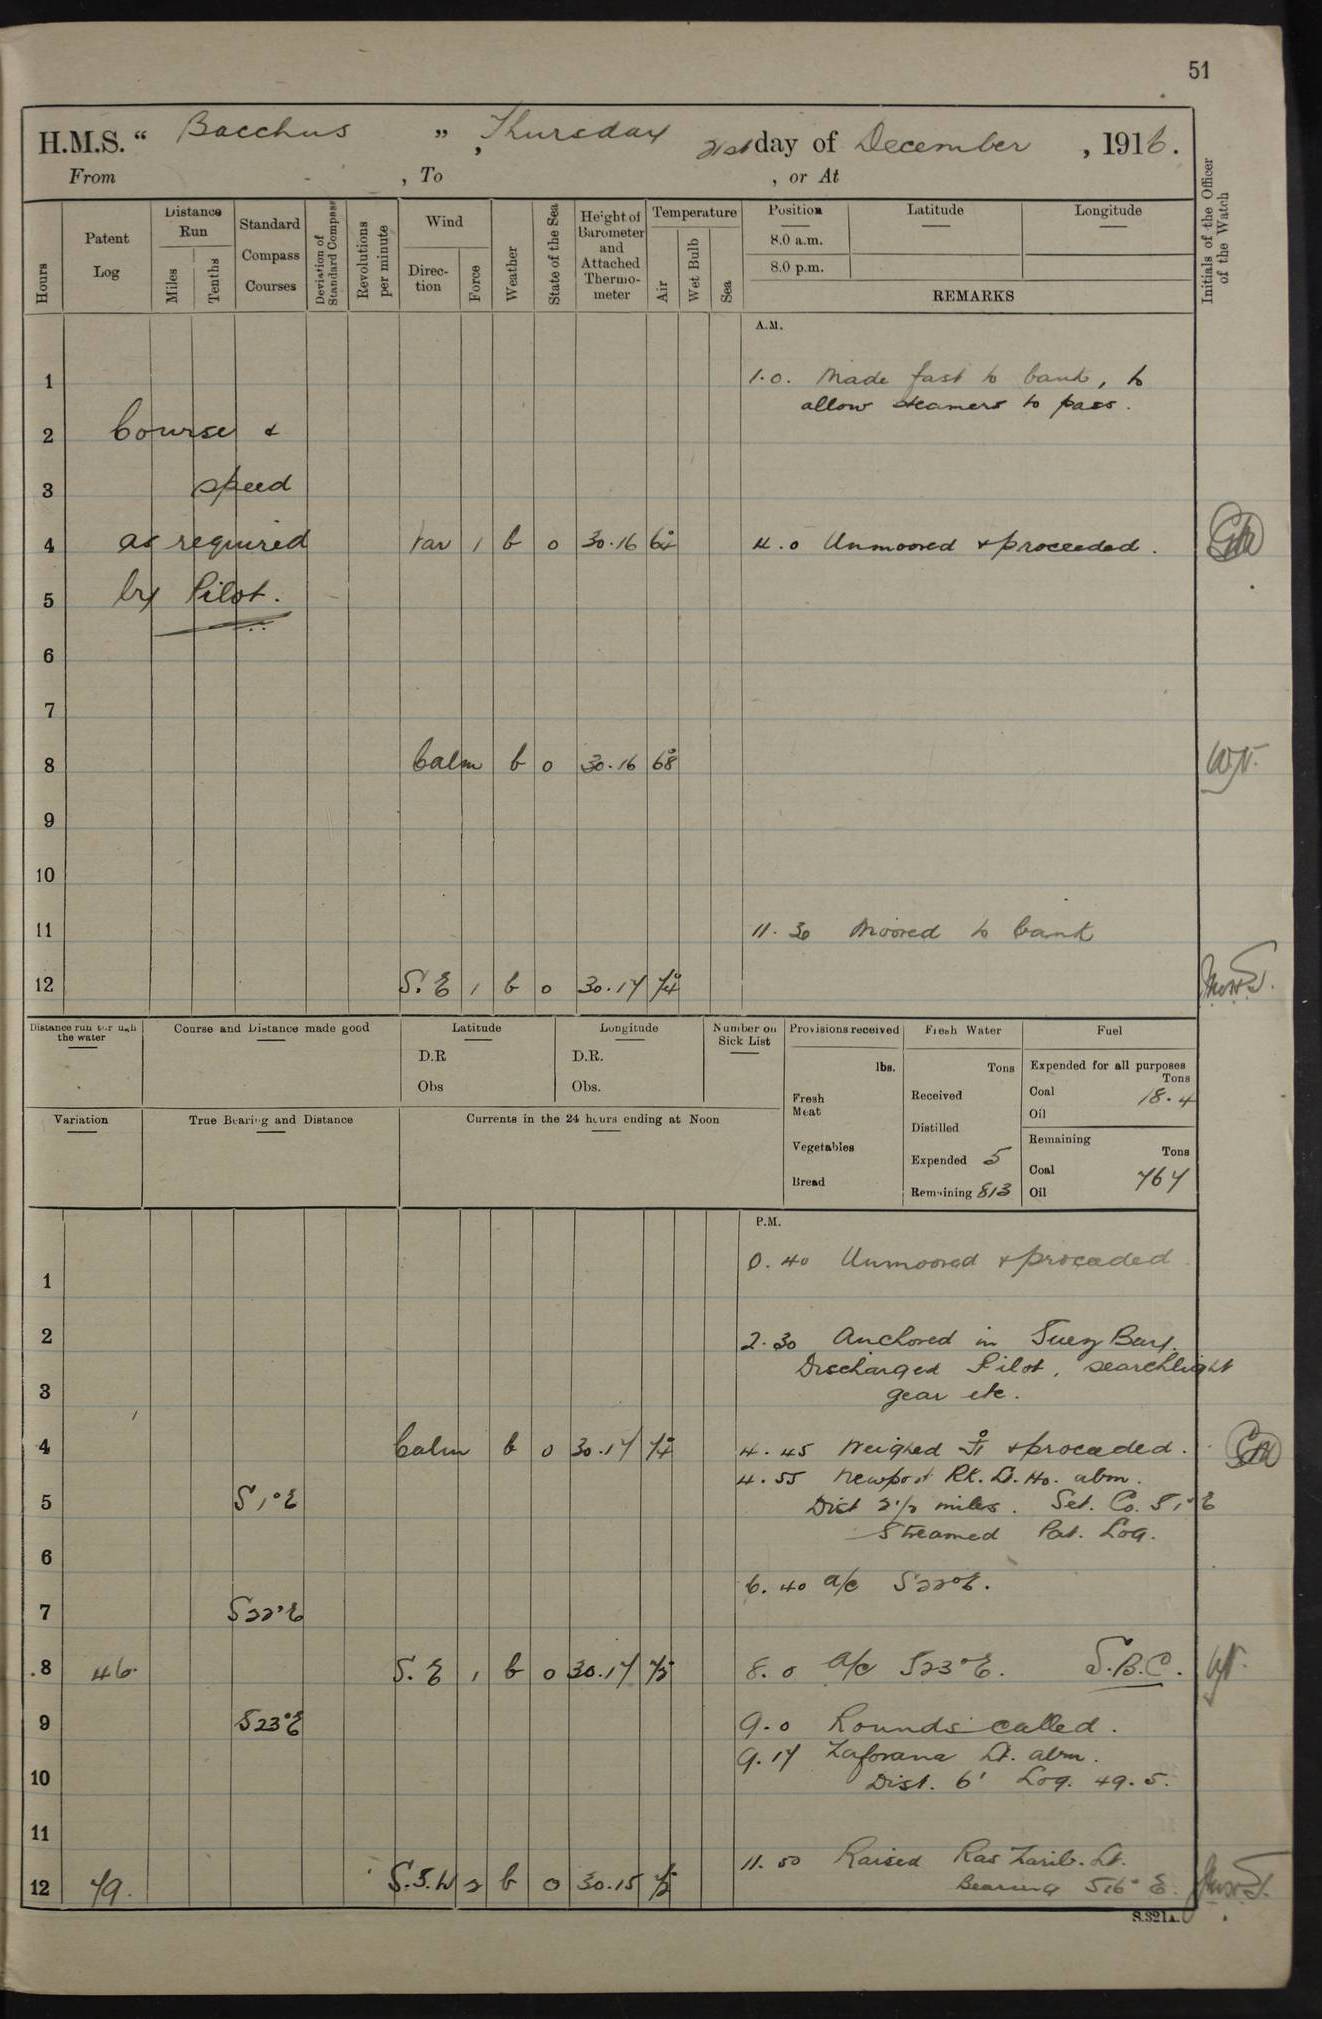 51
H.M.S. “ Bacchus ” , Thursday 21st day of December , 1916.
From , To , or At
Hours
Patent Log
Distance Run
Miles
Tenths
Standard Compass Courses
Deviation of Standard Compass
Revolutions per minute
Wind
Direc-tion
Force
Weather
State of the Sea
Height of Barometer and Attached Thermo-meter
Temperature
Air
Wet Bulb
Sea
Position
8.0 a.m.
8.0 p.m.
Latitude
Longitude
REMARKS
Initials of the Officer of the Watch
A.M.
1 1.0. Made fast to bank, to
allow steamers to pass.
2 Course &
3 speed
4 as required Var 1 b 0 30.16 64° 4.0 Unmoored & proceeded.
5 by Pilot.
6
7
8 Calm b 0 30.16 68° W.N.
9
10
11 11.30 Moored to bank
12 S.E 1 b 0 30.17 74°
Distance run through the water
Course and Distance made good
Latitude
D.R
Obs
Longitude
D.R.
Obs.
Number on Sick List
Provisions received
lbs.
Fresh Meat
Vegetables
Bread
Fresh Water
Tons
Received
Distilled
Expended 5
Remaining 813
Fuel
Expended for all purposes
Tons
Coal 18.4
Oil
Remaining
Tons
Coal 767
Oil
Variation
True Bearing and Distance
Currents in the 24 hours ending at Noon
P.M.
0.40 Unmoored & proceeded
1
2 2.30 Anchored in Suez Bay.
Discharged Pilot, searchlight
3 gear etc.
4 Calm b 0 30.17 74° 4.45 Weighed & proceeded.
4.55 Newport Rk. Lt. Ho. abm.
5 S 1° E Dist 2 1/2 miles. Set. Co. S 1° E
Streamed Pat. Log.
6
6.40 a/c S22°E.
7 S22°E
8 46. S.E 1 b 0 30.17 72° 8.0 a/c S23°E. S.B.C.
9 S23°E 9.0 Rounds called.
9.17 Zafarana Lt. abm.
10 Dist. 6' Log. 49.5.
11
11.50 Raised Ras Zarib. Lt.
12 79. S.S.W 2 b 0 30.15 72° Bearing S16° E.
S.321A.